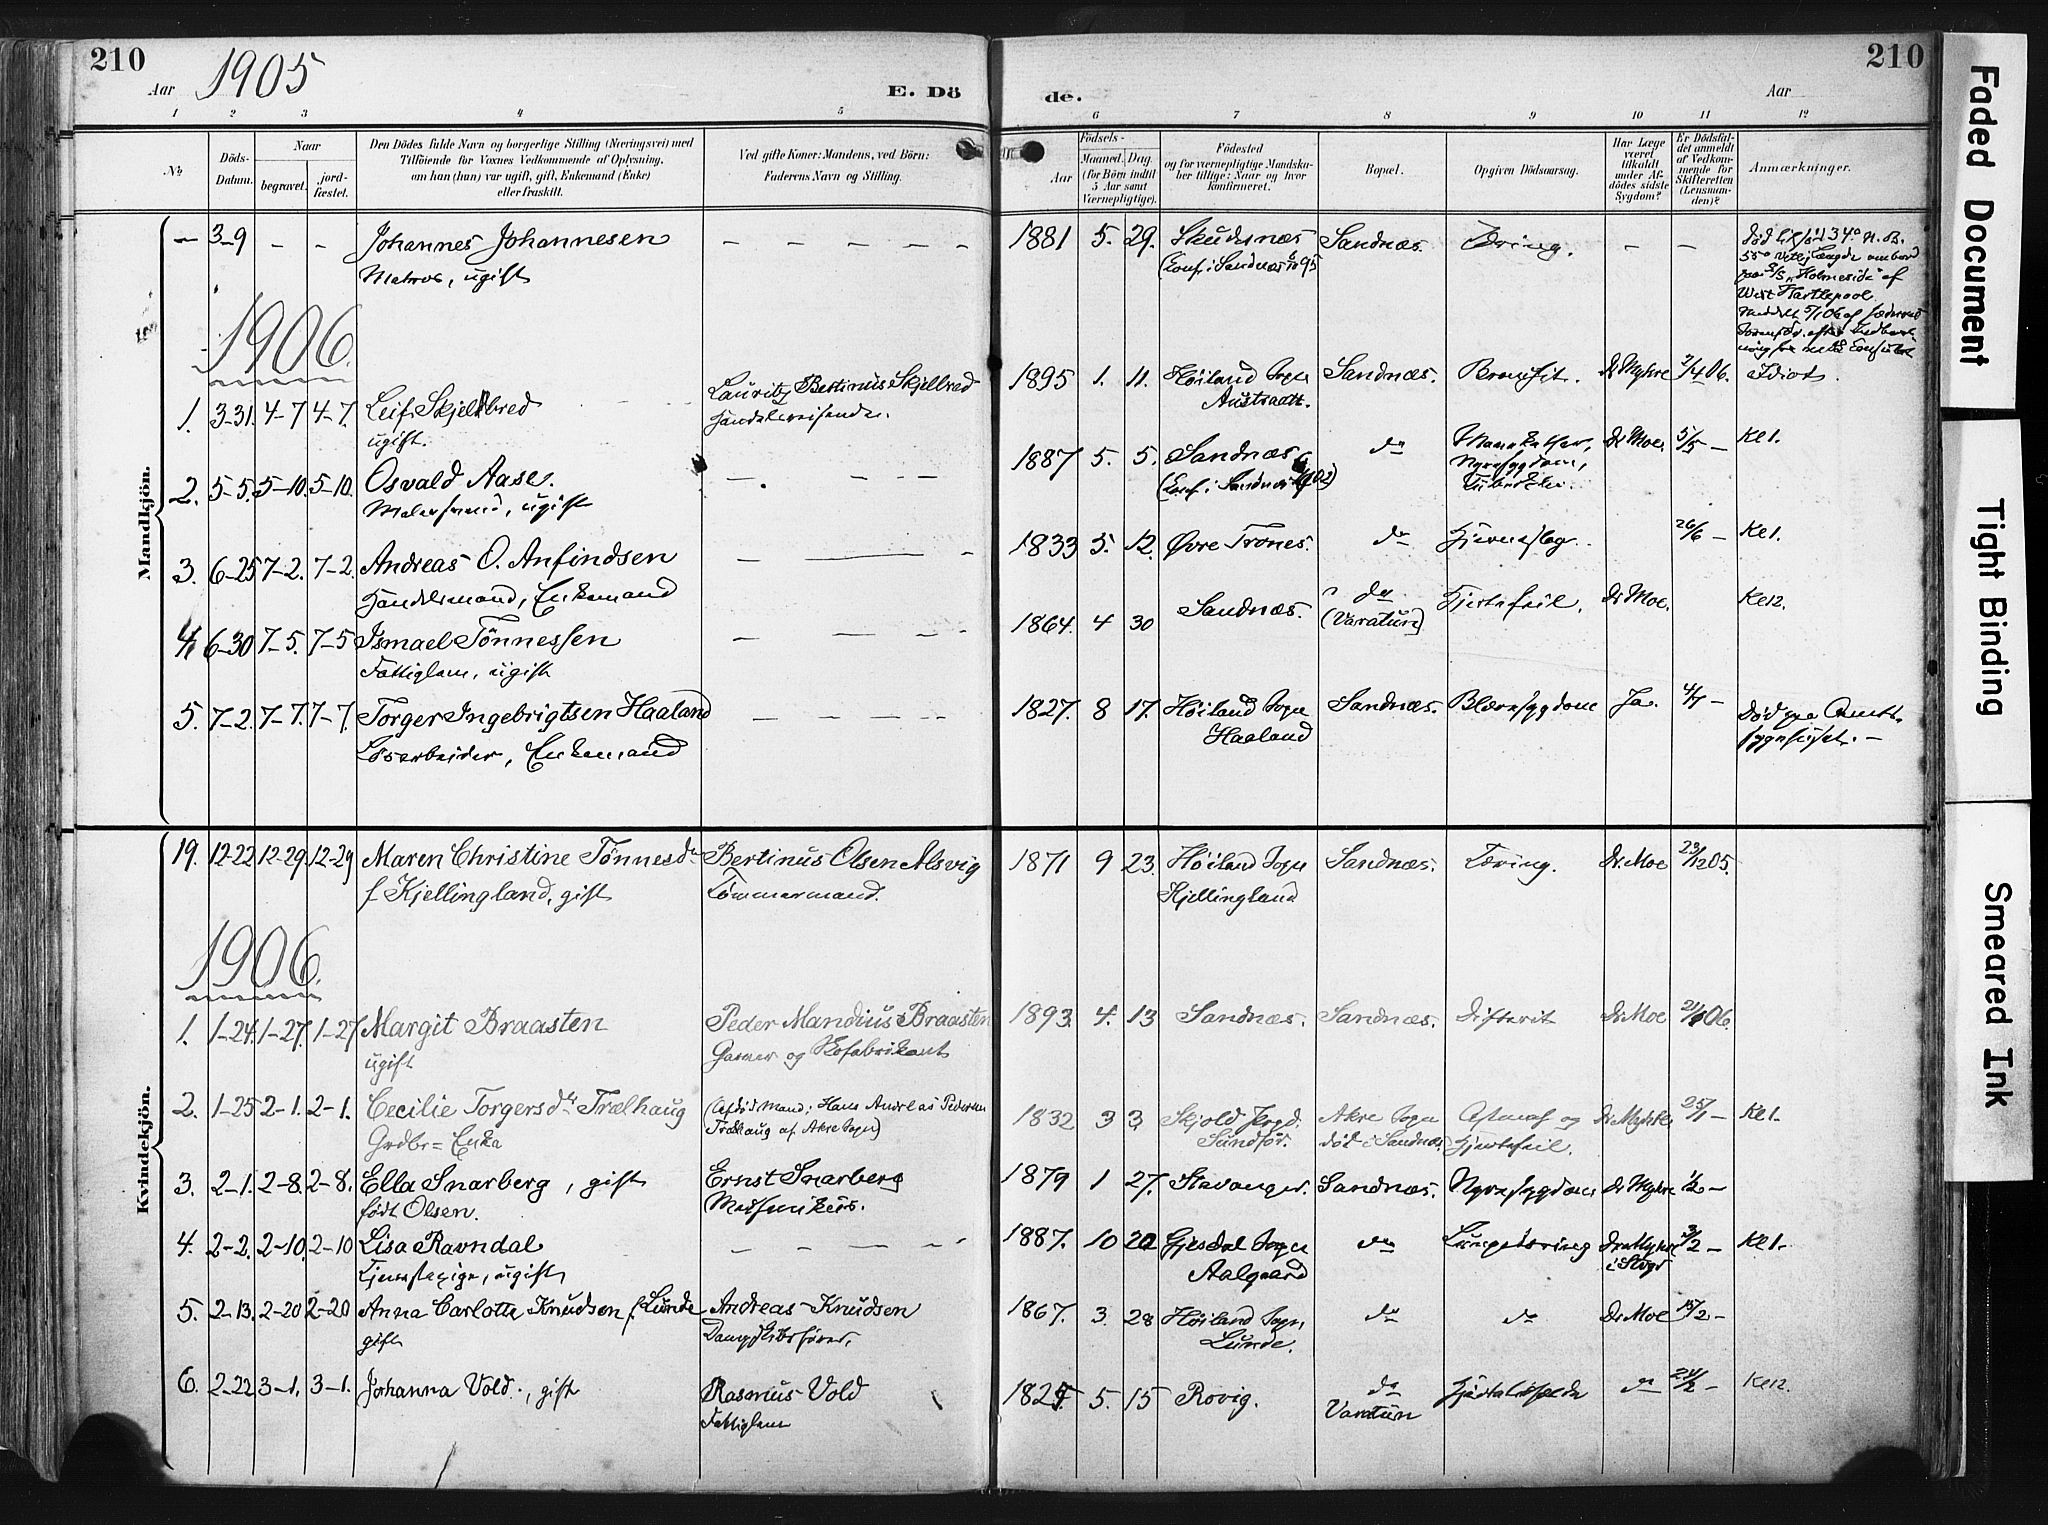 210
Aar 1905
E. Dö
de.
Aar
210
1 2 3 4 5 6 7 8 9 10 11 12
No
Döds-Datum.
Naar
begravet.
jord-fæstet.
Den Dödes fulde Navn og borgerlige Stilling (Næringsvei) med
Tilföiende for Voxnes Vedkommende af Oplysning,
om han (hun) var ugift, gift, Enkemand (Enke)
eller fraskilt.
Ved gifte Koner: Mandens, ved Börn:
Faderens Navn og Stilling.
Födsels-
Aar
Maaned. Dag.
(for Börn indtil
5 Aar samt
Værnepligtige).
Födested
og for værnepligtige Mandska-
ber tillige: Naar og hvor
konfirmeret.
Bopæl.
Opgiven Dödsaarsag.
Har Læge
været
tilkaldt
under Af-
dödes sidste
Sygdom?
Er Dödsfal-
det anmeldt
af Vedkom-
mende for
Skifteretten
(Lensman-
den)?
Anmærkninger.
Mandkjön.
— 3-9 — — Johannes Johannesen — — — — 1881 5. 29. Skudesnæs Sandnæs. Tæring. — —
Matros, ugift (Konf. i Sandnæs 95
Død 34° N. B.
55° Vestlængde ombord
paa S/S "Holmeside" af
West Hartlepool.
1906.
1. 3-31. 4-7 4-7. Leif Skjelbred Lauritz Bertinus Skjelbred 1895 1. 11. Höiland Sogn Sandnæs. Dr Myhre 2/4 06. Idiot.
ugift. Handelsreisende. Austraatt.
2. 5-5. 5-10. 5-10. Osvald Aase. — — — 1887 5. 5. Sandnæs do Dr Moe. 5/5 — Kl 1.
Malersvend, ugift (Konf. i Sandnæs 1902) Nyresygdom,
3. 6-25 7-2. 7-2. Andreas O. Anfindsen — — — 1833 5. 12. Øvre Trones. do Hjerneslag. 26/6 — Kl 1.
Handelsmand, Enkemand
4. 6-30 7-5. 7-5 Ismael Tönnessen — — — 1864. 4 30 Sandnæs. do. (Varatun) Hjertefeil. Dr Moe. Kl 2.
Fattiglem, ugift
5. 7-2. 7-7. 7-7. Torger Ingebrigtsen Haaland — — — 1827. 8 17. Höiland Sogn Sandnæs. Blæresygdom Ja. 4/7 — Död paa Amts-
Løsarbeider, Enkemand Haaland sygehuset. —
Kvindekjön.
19. 12-22 12-29. 12-29 Maren Christine Tönnesdr Bertinus Olsen Alsvig 1871 9 23. Höiland Sogn Sandnæs. Tæring. Dr. Moe 23/12 05.
f. Kjellingland, gift Tömmermand. Kjellingland
1906.
1. 1-24. 1-27. 1-27 Margit Braasten Peder Mandius Braasten 1893. 4. 13 Sandnæs. Sandnæs. Difterit Dr. Moe 24/1 06.
ugift Garver og Skofabrikant
2. 1-25 2-1. 2-1. Cecilie Torgersdtr Trælhaug (Afdöd Mand: Hans Andreas Pedersen 1832 3 3. Skjold Prgd. Akre Sogn Astma og Dr Myhre 25/1 — Kl 1.
Grdbr= Enke Trælhaug af Akre Sogn) död i Sandnæs Hjertefeil.
3. 2-1. 2-8. 2-8. Ella Snarberg, gift Ernst Snarberg 1879 1 27. Stavanger. Sandnæs. Nyresygdom Dr Myhre 1/2 —
födt Olsen.
4. 2-2. 2-10. 2-10 Lisa Ravndal — — — 1887. 10 20 Gjesdal Sogn do Lungetæring Dr Myhre 3/2 — Kl 1.
Tjenestepige, ugift, Aalgaard
5. 2-13. 2-20 2-20 Anna Carlotte Knudsen f. Lunde Andreas Knudsen 1867. 3. 28 Höiland Sogn do do Dr Moe 15/2 —
gift Dampskibsförer. Lunde.
6. 2-22 3-1. 3-1. Johanna Vold, gift Rasmus Vold 5. 15 Rovig. do do Kl 2.
Fattiglem Varatun
Faded Document
Tight Binding
Smeared Ink